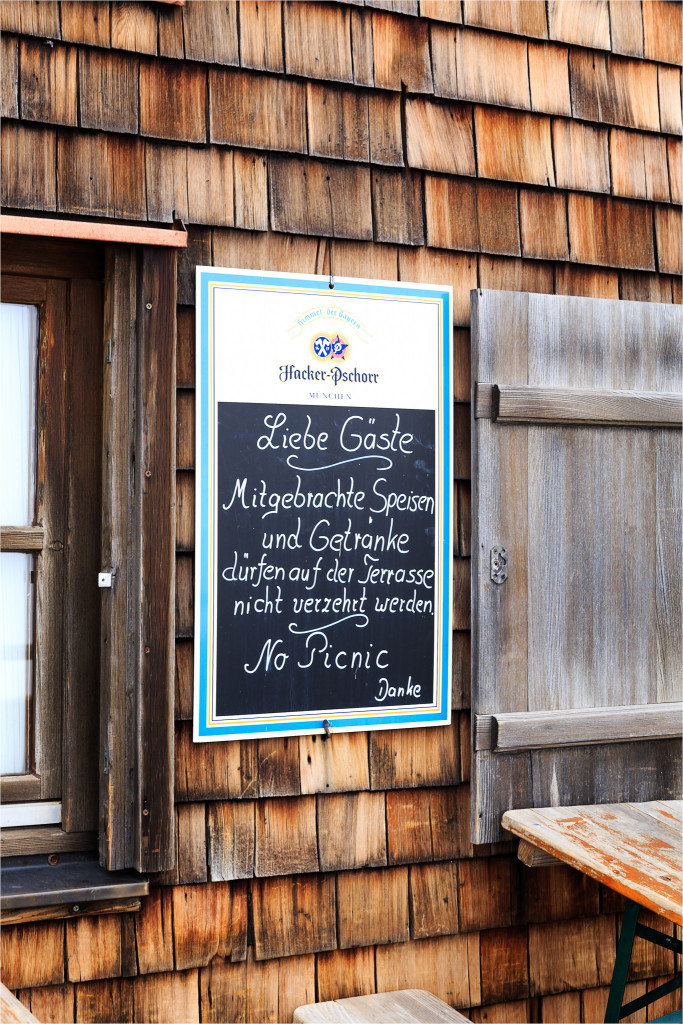 Himmel der Bayern
Hacker-Pschorr
MÜNCHEN
Liebe Gäste
Mitgebrachte Speisen
und Getränke
dürfen auf der Terrasse
nicht verzehrt werden.
No Picnic
Danke